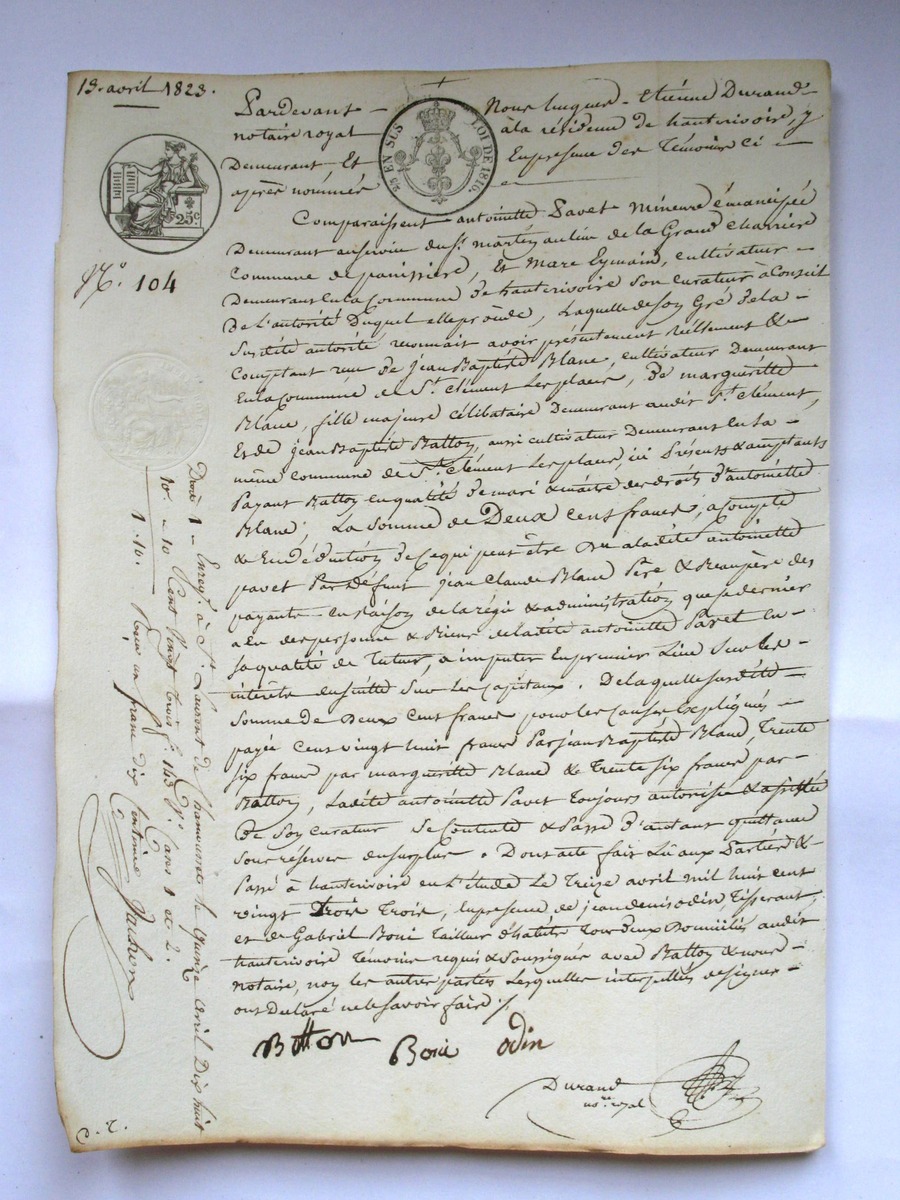 13. avril 1823.
Pardevant - Nous hugues - Etiénne Durand
notaire royal à la résidence de hauterivoire, y
Demeurant Et En présence des Témoins Ci -
après nommés
EN SUS LOI DE 1816.
25c.
N.° 104
Comparaissent antoinette Pavet Mineure émancipée
Demeurant au servic du S.r au lieu de la Grand Charriere
Commune de panissiere, Et Marc Eymain, cultivateur -
Demeurant En la Commune de hauterivoire Son Curateur à Conseil
De l'autorité Duquel elle procéde, Laquelle de Son Gré de la -
Susdité autorité reconnait avoir présentement réellement &
Comptant reçu de jean Baptiste Blanc, cultivateur Demeurant
En la Commune de S.t Clément Les places, de marguéritte
Blanc, fille majeure célibataire Demeurant audit S.t Clément,
Et de jean Baptiste Batton, aussi cultivateur Demeurant En la -
même Commune de S.t Clément Les places, ici Présents & acceptants
Payant Batton en qualité de mari & maitre des droits D'antoinétte
Blanc, La Somme de Deux Cent francs, a Compte
& En Déduction de Ce qui peut être Du a ladité antoinétte
pavet Par Défunt jean Claude Blanc Pére & Beaupère des
payants en Raison de la régie & administration que ce dernier
a Eu des personne & Biens de ladité antoinétte Pavet En -
sa qualité de Tuteur, a imputer En premier Lieu Sur les -
intérêts Ensuitte Sur Les Capitaux. De laquelle susdité -
Somme de Deux Cent francs pour les Causes Expliqués -
payée Cent vingt huit francs Par jean Baptiste Blanc, Trente
six francs par marguéritte Blanc & Trente Six francs par -
Batton, Ladité antoinétte Pavet Toujours autorisée & assistée
de Son Curateur Se Contente & Passe D'autant quittance
Sous réserves du surplus. Dont acte fait Lû aux Parties &
Passé à hauterivoire en L'étude Le Treize avril mil huit cent
vingt Trois Trois, En présence de jean denis odin Tisserant,
et de Gabriel Boni Tailleur d'habits Tous deux Domiciliés audit
hauterivoire Témoins requis & Soussignés avec Batton & nous -
notaire, non les autres parties Lesquelles interpellés de signer -
ont Déclaré ne le Savoir faire ./.
Batton Boni odin
Durand
no.re royal
D. T.
Enreg.é à S.t Laurent de Chamousset le Quinze avril Dix huit
Cent Vingt trois f.° 143 V.° C. ans 1 et 2.
Reçu un franc dix Centimes
Droit 1 -
10. - 10
1. 10.